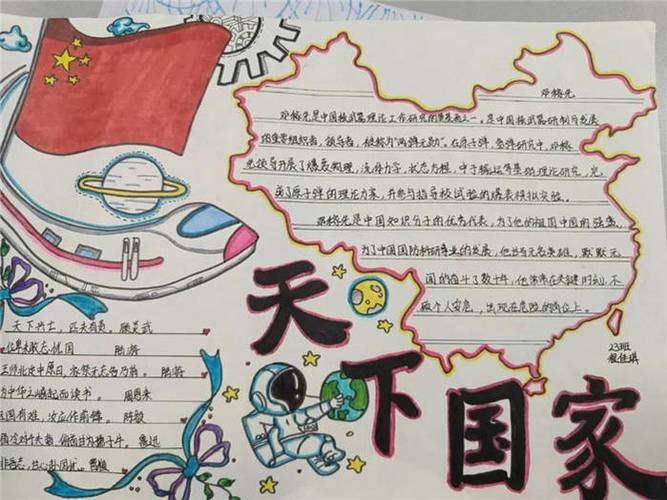 邓稼先
邓稼先是中国核武器理论工作研究的奠基者之一。是中国核武器研制与发展
的重要组织者，领导者，被称为“两弹元勋”。在原子弹，氢弹研究中，邓稼
先领导开展了爆轰物理，流体力学，状态方程，中子输运等基础理论研究，完
成了原子弹的理论方案，并参与指导核试验的爆轰模拟实验。
邓稼先是中国知识分子的优秀代表，为了他的祖国中国的强盛，
为了中国国防科研事业的发展，他甘当无名英雄，默默无
闻的奋斗了数十年，他常常在关键时刻，不
顾个人安危，出现在危险的岗位上。
23班
天下国家
天下兴亡，匹夫有责 顾炎武
位卑未敢忘忧国 陆游
王师北定中原日，家祭无忘告乃翁。 陆游
为中华之崛起而读书。 周恩来
国有难，汝应作前锋。 陈毅
横眉冷对千夫指，俯首甘为孺子牛。 鲁迅